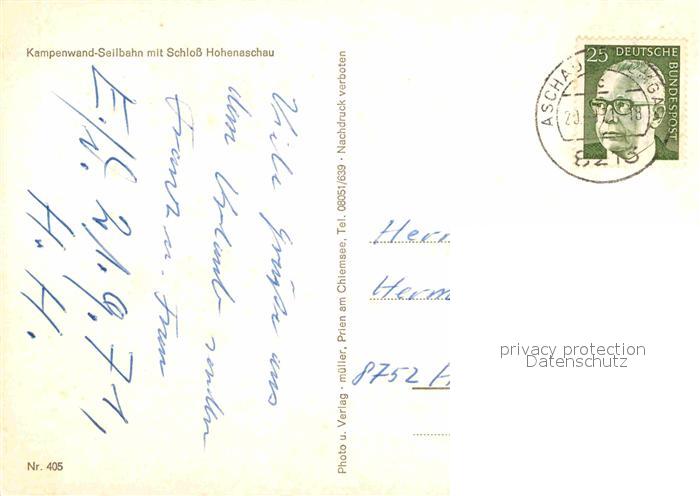 Kampenwand-Seilbahn mit Schloß Hohenaschau
Viele Grüße aus
dem Urlaub senden
Franz u. Frau
E./G. 21.9.71,
H. H.
Nr. 405
Photo u. Verlag · müller, Prien am Chiemsee, Tel. 08051/639 · Nachdruck verboten
25 DEUTSCHE
BUNDESPOST
ASCHAU
8213
Herrn
Herm
8752 H
privacy protection
Datenschutz